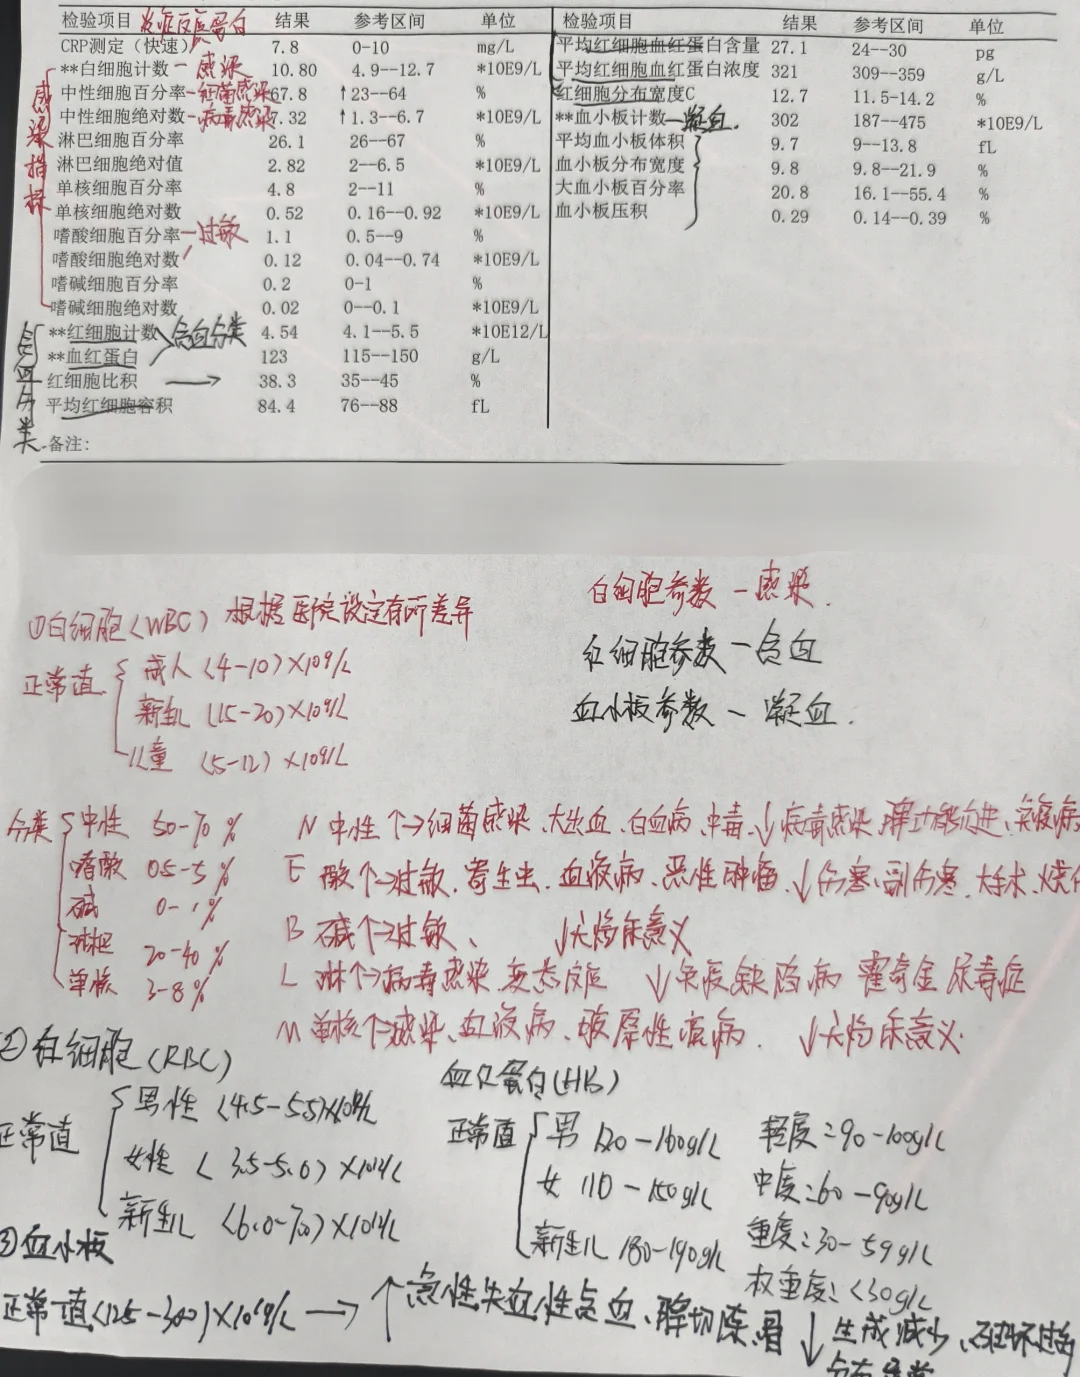 检验项目 炎症反应蛋白 结果 参考区间 单位
CRP测定(快速) 7.8 0-10 mg/L
**白细胞计数-感染 10.80 4.9--12.7 *10E9/L
中性细胞百分率-细菌感染 67.8 ↑23--64 %
中性细胞绝对数-病毒感染 7.32 ↑1.3--6.7 *10E9/L
淋巴细胞百分率 26.1 26--67 %
淋巴细胞绝对值 2.82 2--6.5 *10E9/L
单核细胞百分率 4.8 2--11 %
单核细胞绝对数 0.52 0.16--0.92 *10E9/L
嗜酸细胞百分率-过敏 1.1 0.5--9 %
嗜酸细胞绝对数 0.12 0.04--0.74 *10E9/L
嗜碱细胞百分率 0.2 0-1 %
嗜碱细胞绝对数 0.02 0--0.1 *10E9/L
**红细胞计数 贫血分类 4.54 4.1--5.5 *10E12/L
**血红蛋白 123 115--150 g/L
红细胞比积 → 38.3 35--45 %
平均红细胞容积 84.4 76--88 fL
备注:
感染指标
贫血分类
检验项目 结果 参考区间 单位
平均红细胞血红蛋白含量 27.1 24--30 pg
平均红细胞血红蛋白浓度 321 309--359 g/L
红细胞分布宽度C 12.7 11.5-14.2 %
**血小板计数-凝血. 302 187--475 *10E9/L
平均血小板体积 9.7 9--13.8 fL
血小板分布宽度 9.8 9.8--21.9 %
大血小板百分率 20.8 16.1--55.4 %
血小板压积 0.29 0.14--0.39 %
白细胞参数-感染.
红细胞参数-贫血
血小板参数-凝血.
①白细胞(WBC) 根据医院设定有所差异
正常值 成人 (4-10)×10⁹/L
新生儿 (15-20)×10⁹/L
儿童 (5-12)×10⁹/L
分类 中性 50-70%
嗜酸 0.5-5%
碱 0-1%
淋巴 20-40%
单核 3-8%
N 中性↑→细菌感染、大出血、白血病、中毒、↓病毒感染、脾功能亢进、免疫病
E 酸↑→过敏、寄生虫、血液病、恶性肿瘤、↓伤寒、副伤寒、大手术、烧伤
B 碱↑→过敏、 ↓无临床意义
L 淋↑→病毒感染、变态反应 ↓免疫缺陷病 霍奇金 尿毒症
M 单核↑→感染、血液病、 ↓无临床意义.
②红细胞(RBC)
正常值 男性 (4.5-5.5)×10¹²/L
女性 (3.5-5.0)×10¹²/L
新生儿 (6.0-7.0)×10¹²/L
血红蛋白(HB)
正常值 男 120-160g/L
女 110-150g/L
新生儿 180-190g/L
轻度:90-100g/L
中度:60-90g/L
重度:30-59g/L
极重度:<30g/L
③血小板
正常值(125-300)×10⁹/L → ↑急性失血性贫血、脾切除、骨 ↓生成减少、破坏过多
分布异常